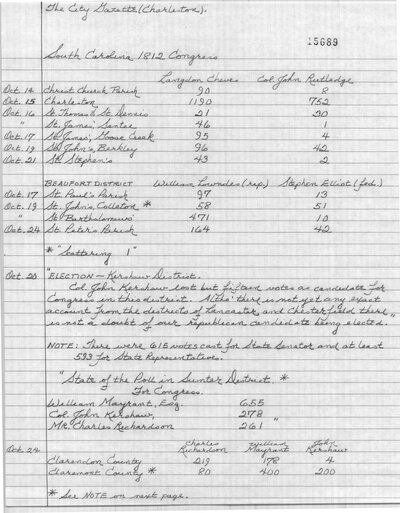 The City Gazette (Charleston).
15689
South Carolina 1812 Congress
Langdon Cheves Col. John Rutledge
Oct. 14 Christ Church Parish 90 8
Oct. 15 Charleston 1190 752
Oct. 16 St. Thomas & St. Dennis 21 30
" St. James, Santee 46 1
Oct. 17 St. James, Goose Creek 95 4
Oct. 19 St. John's, Berkley 96 42
Oct. 21 St. Stephen's 43 2
BEAUFORT DISTRICT William Lowndes (rep.) Stephen Elliot (fed.)
Oct. 17 St. Paul's Parish 97 13
Oct. 19 St. John's, Colleton * 58 51
" St. Bartholomews' 471 10
Oct. 24 St. Peters Parish 164 42
* "Scattering 1"
Oct. 20 "ELECTION - Kershaw District.
Col. John Kershaw lost but fifteen votes as candidate for
Congress in this district. Altho' there is not yet any exact
account from the districts of Lancaster and Chesterfield there
is not a doubt of our republican candidate being elected."
NOTE: There were 615 votes cast for State Senator and at least
593 for State Representatives.
"State of the Poll in Sumter District. *
For Congress.
William Mayrant, Esq. 655
Col. John Kershaw, 278
Mr. Charles Richardson 261 "
Charles William John
Oct. 24 Richardson Mayrant Kershaw
Clarendon County 219 178 4
Claremont County * 80 400 200
* See NOTE on next page.